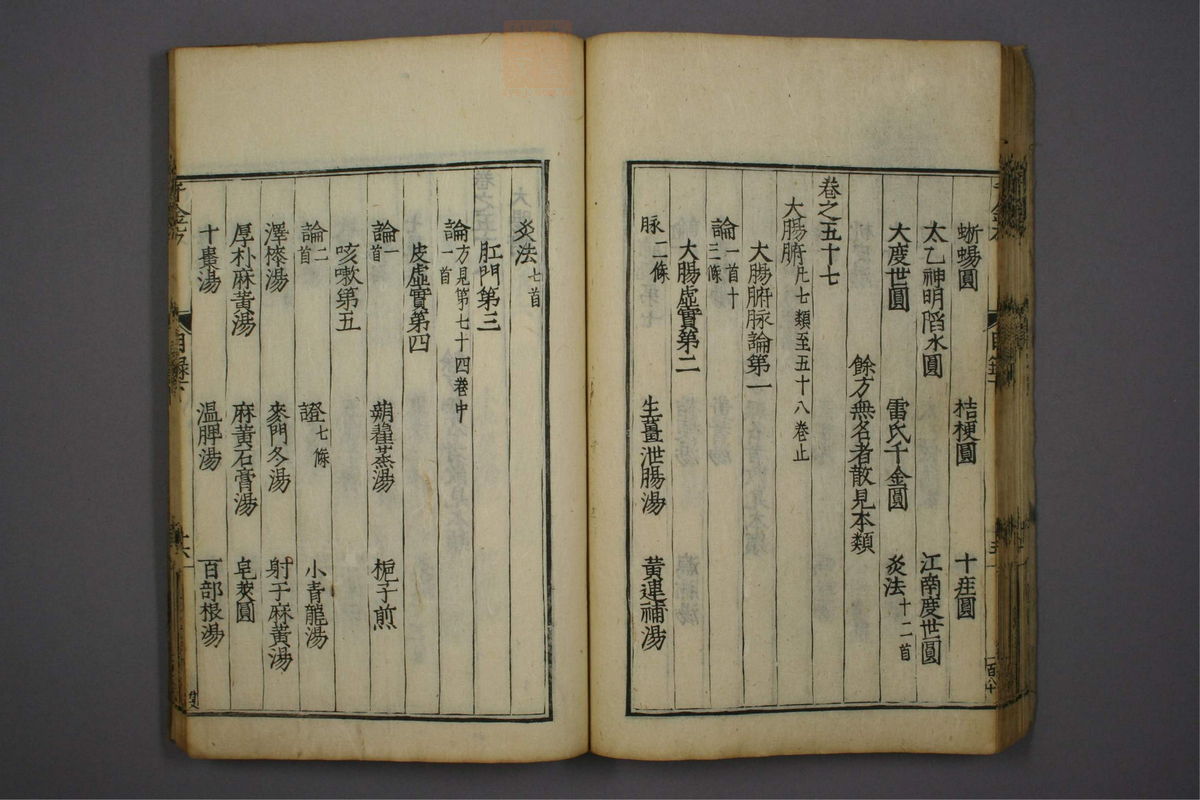 蜥蜴圓 桔梗圓 十疰圓
太乙神明陷氷圓 江南度世圓
大度世圓 雷氏千金圓 灸法十二首
餘方無名者散見本類
卷之五十七
大腸腑凡七類至五十八卷止
大腸腑脉論第一
論一首十三條
大腸虛實第二
脉二條 生薑泄腸湯 黃連補湯
灸法七首
肛門第三
論一首方見第七十四卷中
皮虛實第四
論一首 蒴藋蒸湯 梔子煎
咳嗽第五
論二首 證七條 小青龍湯
澤㯶湯 麥門冬湯 射干麻黃湯
厚朴麻黃湯 麻黃石膏湯 皂莢圓
十棗湯 溫脾湯 百部根湯
千金方 目録六